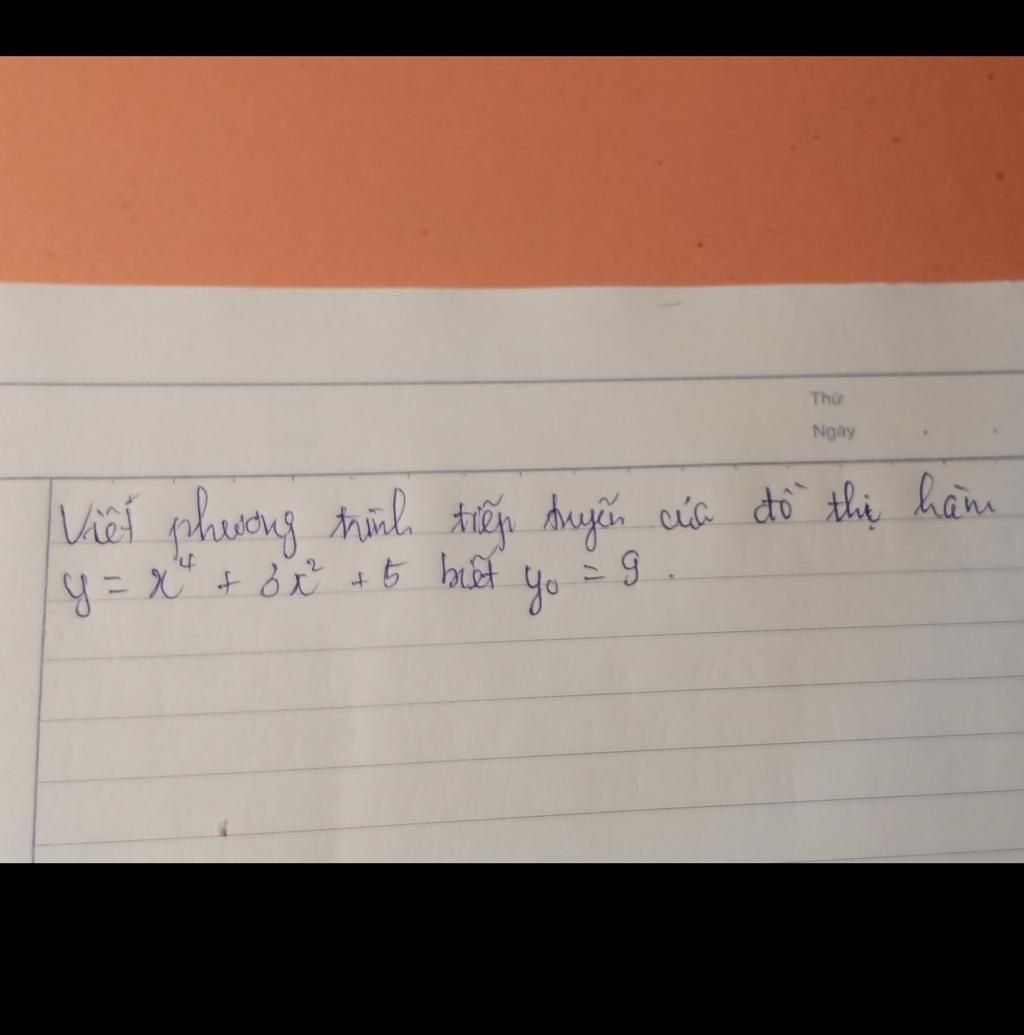 Thứ
Ngày
Viết phương trình tiếp tuyến của đồ thị hàm
y = x⁴ + 3x² + 5 biết y₀ = 9 .